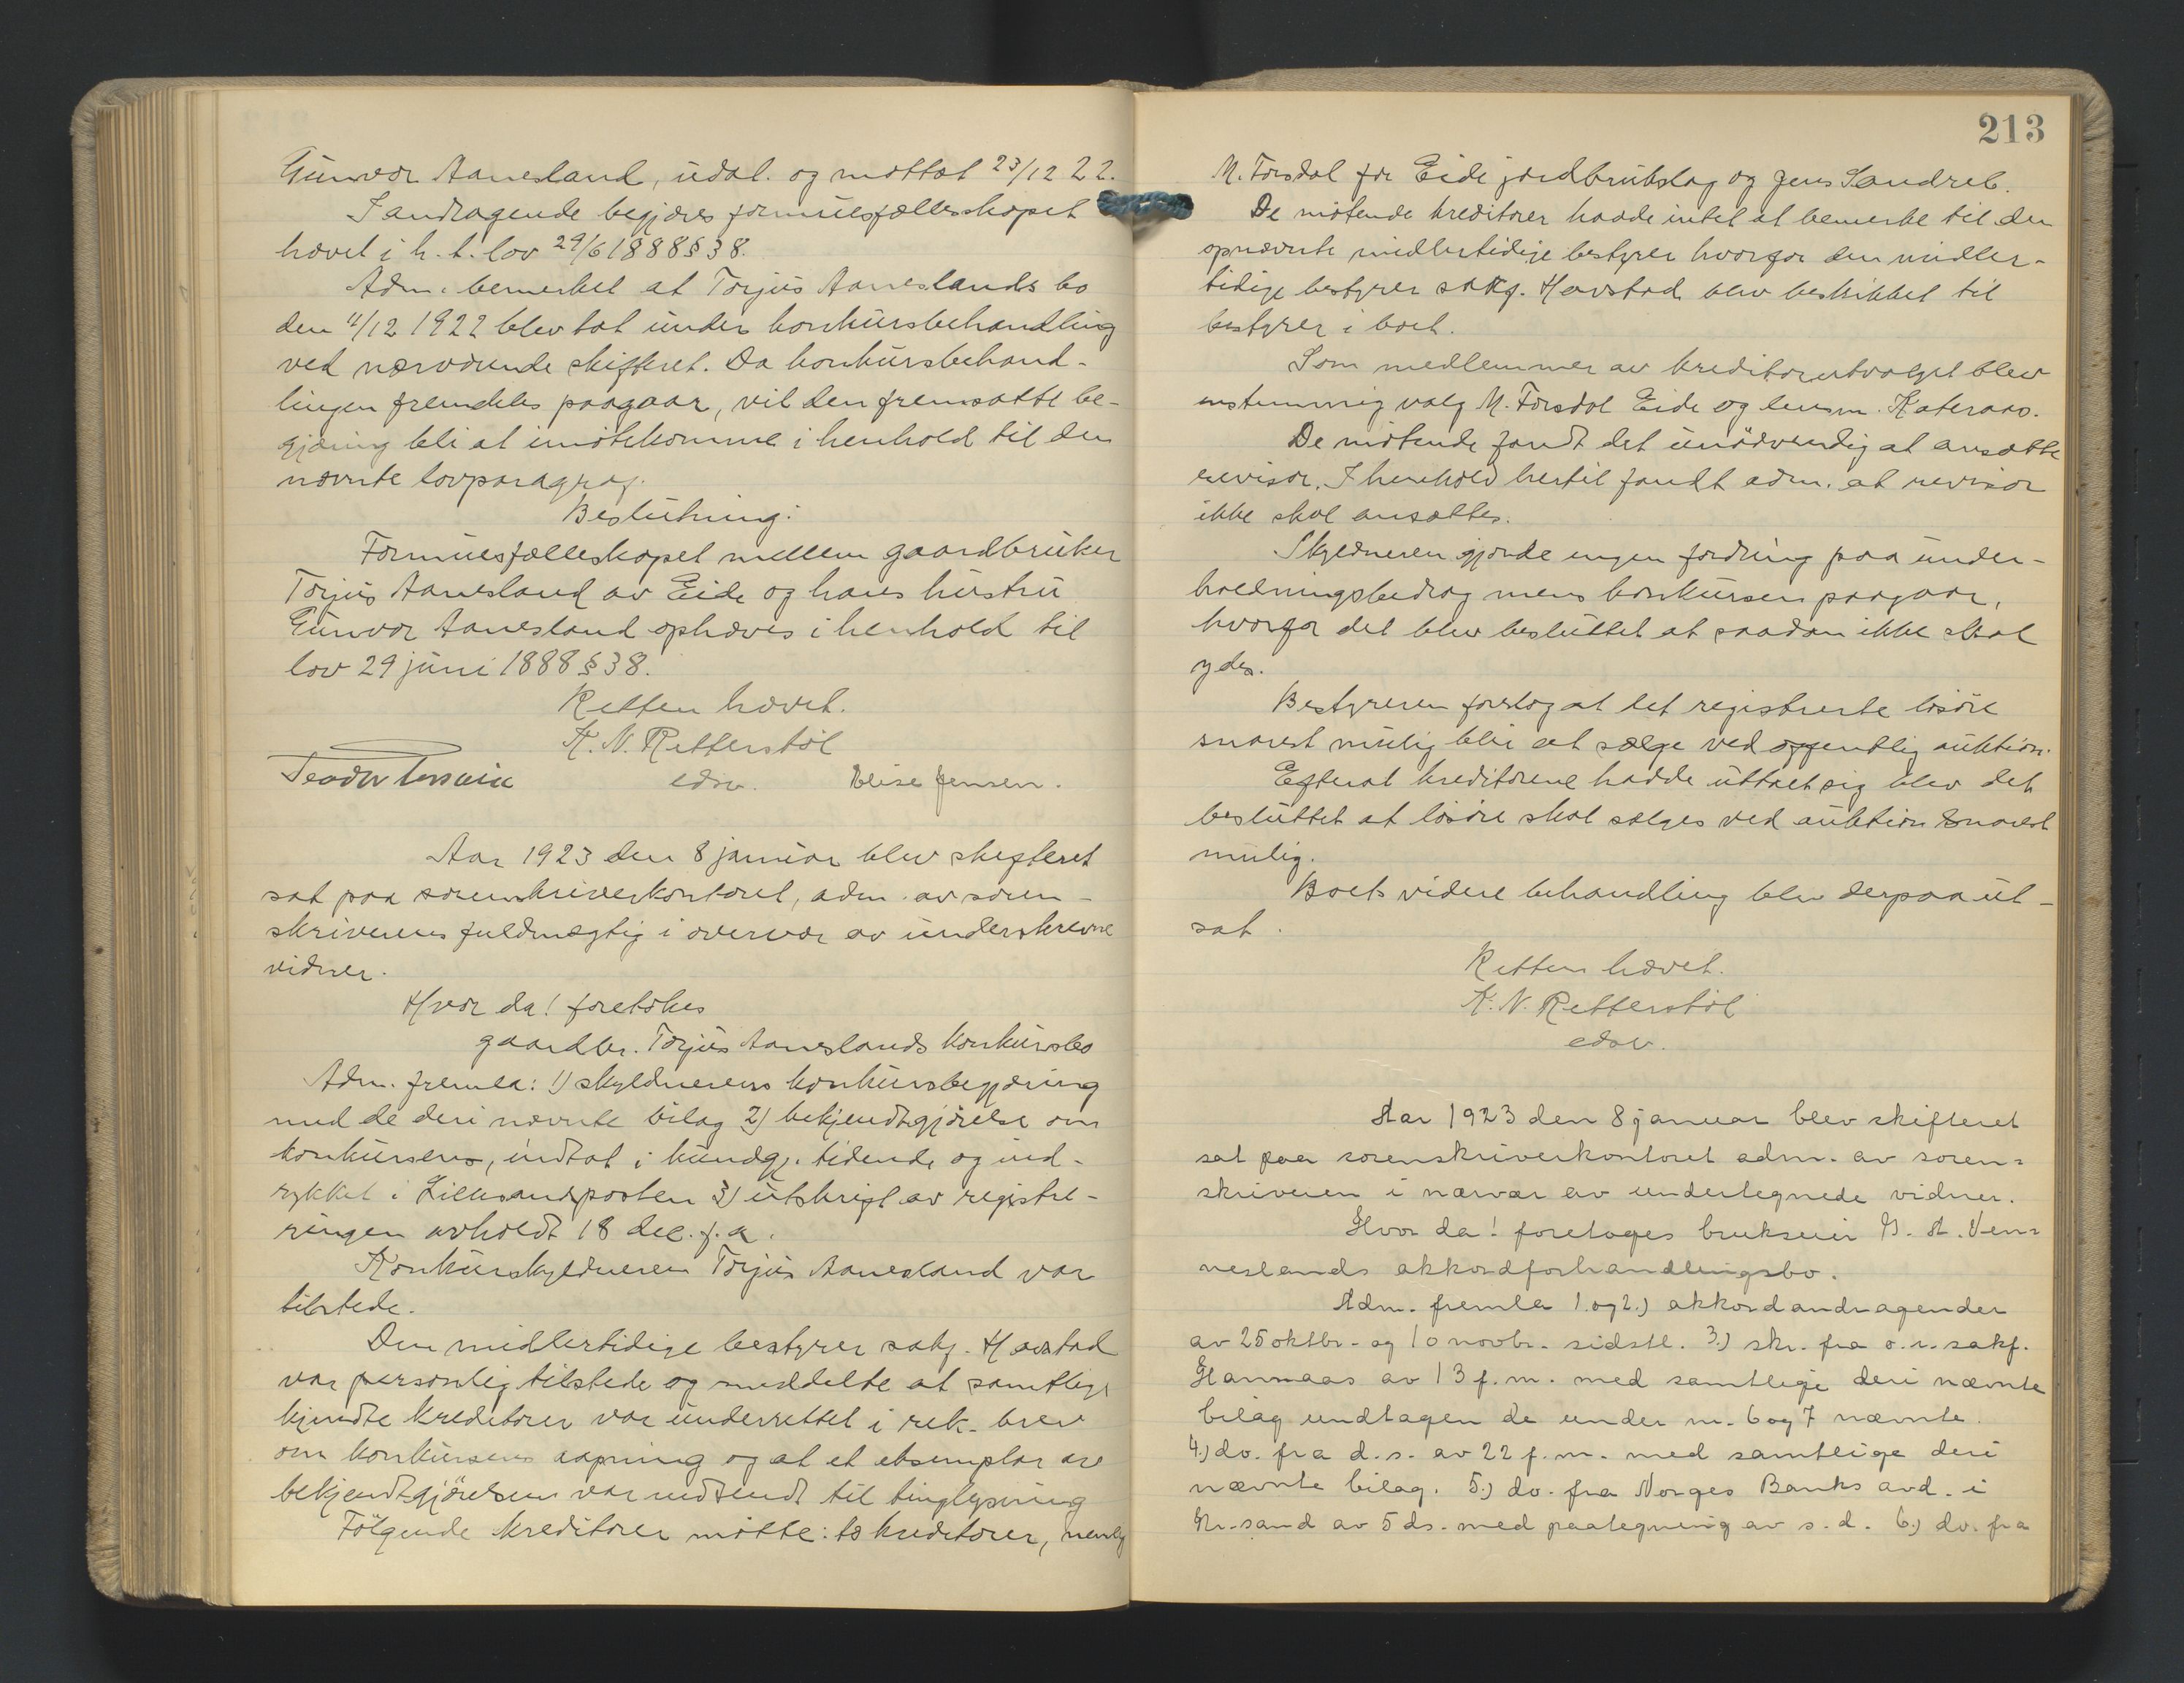 Gunvor Aanesland, udat. og mottat 23/12 22.
I andragende begjæres formuesfællesskapet
hævet i h. t. lov 29/6 1888 § 38.
Adm. bemerket at Torjus Aaneslands bo
den 11/12 1922 blev tat under konkursbehandling
ved nærværende skifteret. Da konkursbehand-
lingen fremdeles paagaar, vil den fremsatte be-
gjæring bli at imøtekomme i henhold til den
nævnte lovparagraf.
Beslutning:
Formuesfælleskapet mellem gaardbruker
Torjus Aanesland av Eide og hans hustru
Gunvor Aanesland ophæves i henhold til
lov 29 juni 1888 § 38.
Retten hævet.
K. N. Retterstøl
edsv. Elise Jensen.
Aar 1923 den 8 januar blev skifteret
sat paa sorenskriverkontoret, adm. av soren-
skriverens fuldmægtig i overvær av underskrevne
vidner.
Hvor da! foretokes
gaardbr. Torjus Aaneslands konkursbo
Adm. fremla: 1) skyldnerens konkursbegjæring
med de deri nævnte bilag 2) bekjendtgjørelse om
konkursen, indtat i kundgj. tidende og ind-
rykket i Lillesandsposten 3) utskrift av registre-
ringen avholdt 18 dec. f. a.
Konkursskyldneren Torjus Aanesland var
tilstede.
Den midlertidige bestyrer sakf. Havstad
var personlig tilstede og meddelte at samtlige
kjendte kreditorer var underrettet i rek. brev
om konkursens aapning og at et eksemplar av
bekjendtgjørelsen var indsendt til tinglysning
Følgende kreditorer møtte: to kreditorer, nemlig
213
M. Torsdal for Eide jordbrukslag og Jens Sandreb.
De møtende kreditorer hadde intet at bemerke til den
opnævnte midlertidige bestyrer hvorfor den midler-
tidige bestyrer sakf. Havstad blev beskikket til
bestyrer i boet.
Som medlemmer av kreditorutvalget blev
enstemmig valg M. Torsdal Eide og lensm. Kateraas.
De møtende fandt det unødvendig at ansætte
revisor. I henhold hertil fandt adm. at revisor
ikke skal ansættes.
Skyldneren gjorde ingen fordring paa under-
holdningsbidrag mens konkursen paagaar,
hvorfor det blev besluttet at saadan ikke skal
ydes.
Bestyreren foreslog at det registrerte løsøre
snarest mulig blir at sælge ved offentlig auktion.
Efterat kreditorene hadde uttalt sig blev det
besluttet at løsøre skal sælges ved auktion snarest
mulig.
Boets videre behandling blev derpaa ut-
sat.
Retten hævet.
K. N. Retterstøl
edsv.
Aar 1923 den 8 januar blev skifteret
sat paa sorenskriverkontoret adm. av soren=
skriveren i nærvær av undertegnede vidner.
Hvor da! foretoges brukseier N. A. Ven=
neslands akkordforhandlingsbo.
Adm. fremla 1. og 2.) akkordandragender
av 25 oktbr. og 10 novbr. sidstl. 3.) skr. fra o.r.sakf.
Hannaas av 13 f.m. med samtlige deri nævnte
bilag undtagen de under nr. 6 og 7 nævnte.
4.) do. fra d.s. av 22 f.m. med samtlige deri
nævnte bilag. 5.) do. fra Norges Banks avd. i
Kr.sand av 5 ds. med paategning av s.d. 6.) do. fra